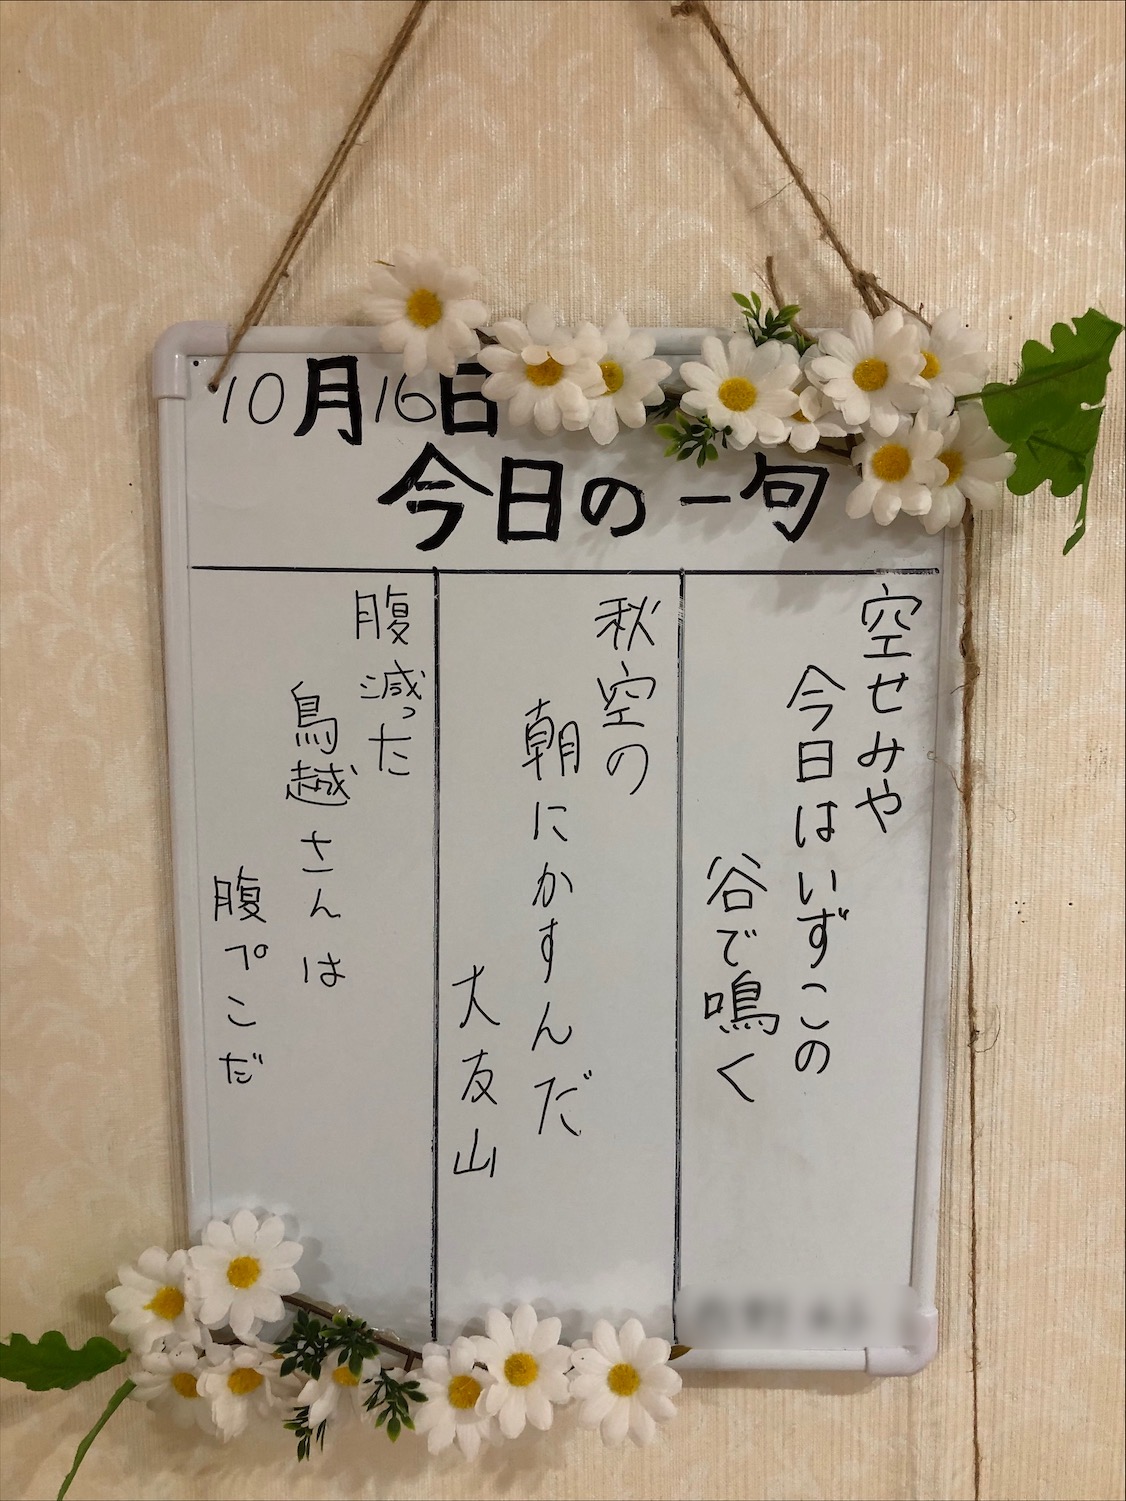 10月16日
今日の一句
空せみや
今日はいずこの
谷で鳴く
秋空の
朝にかすんだ
大友山
腹減った
鳥越さんは
腹プこだ